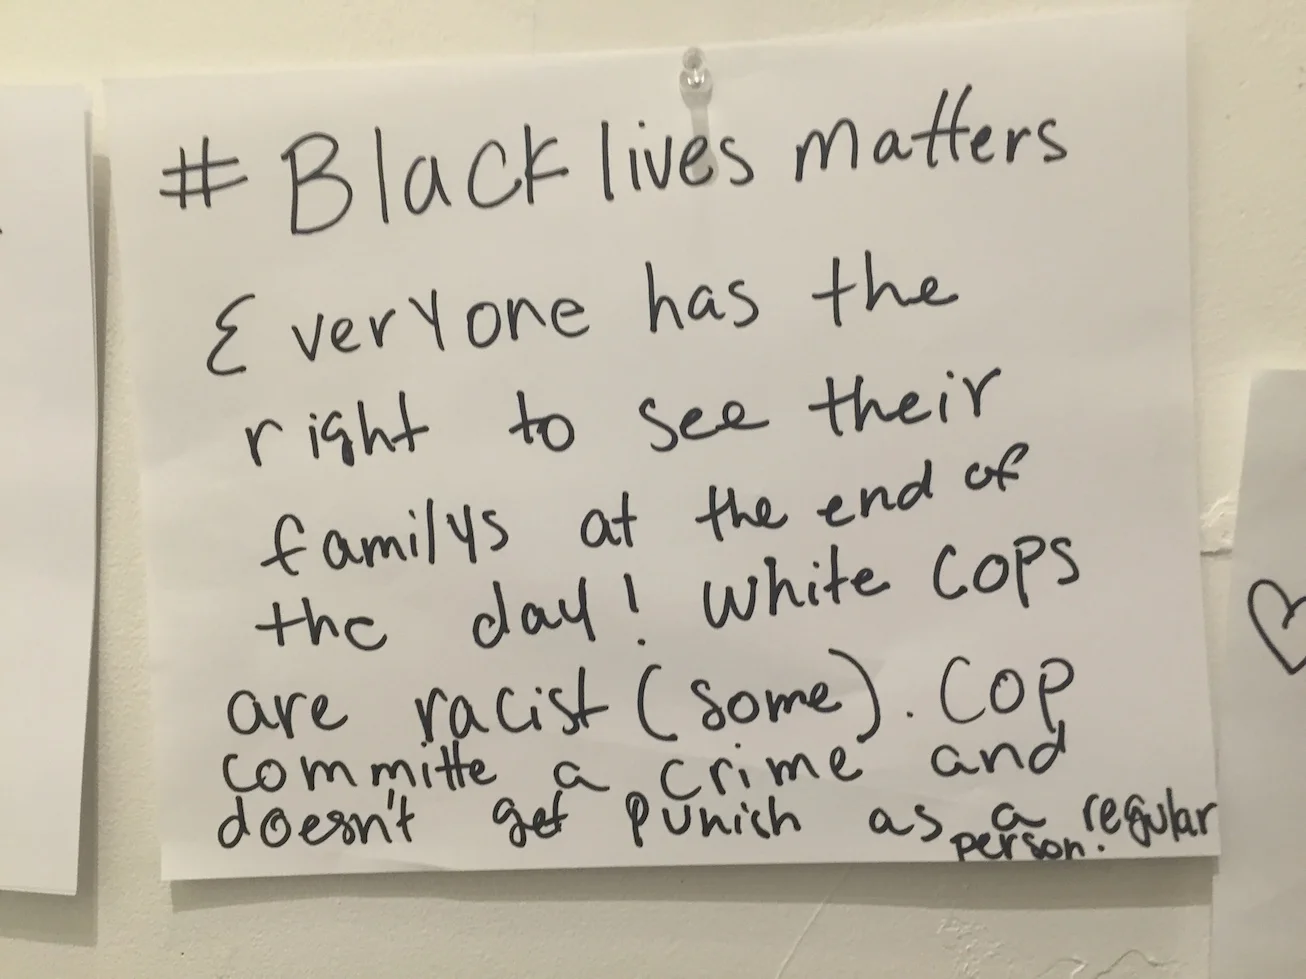 # Black lives matters
Everyone has the
right to see their
familys at the end of
the day! White cops
are racist (some). Cop
committe a crime and
doesn't get punich as a regular
person.